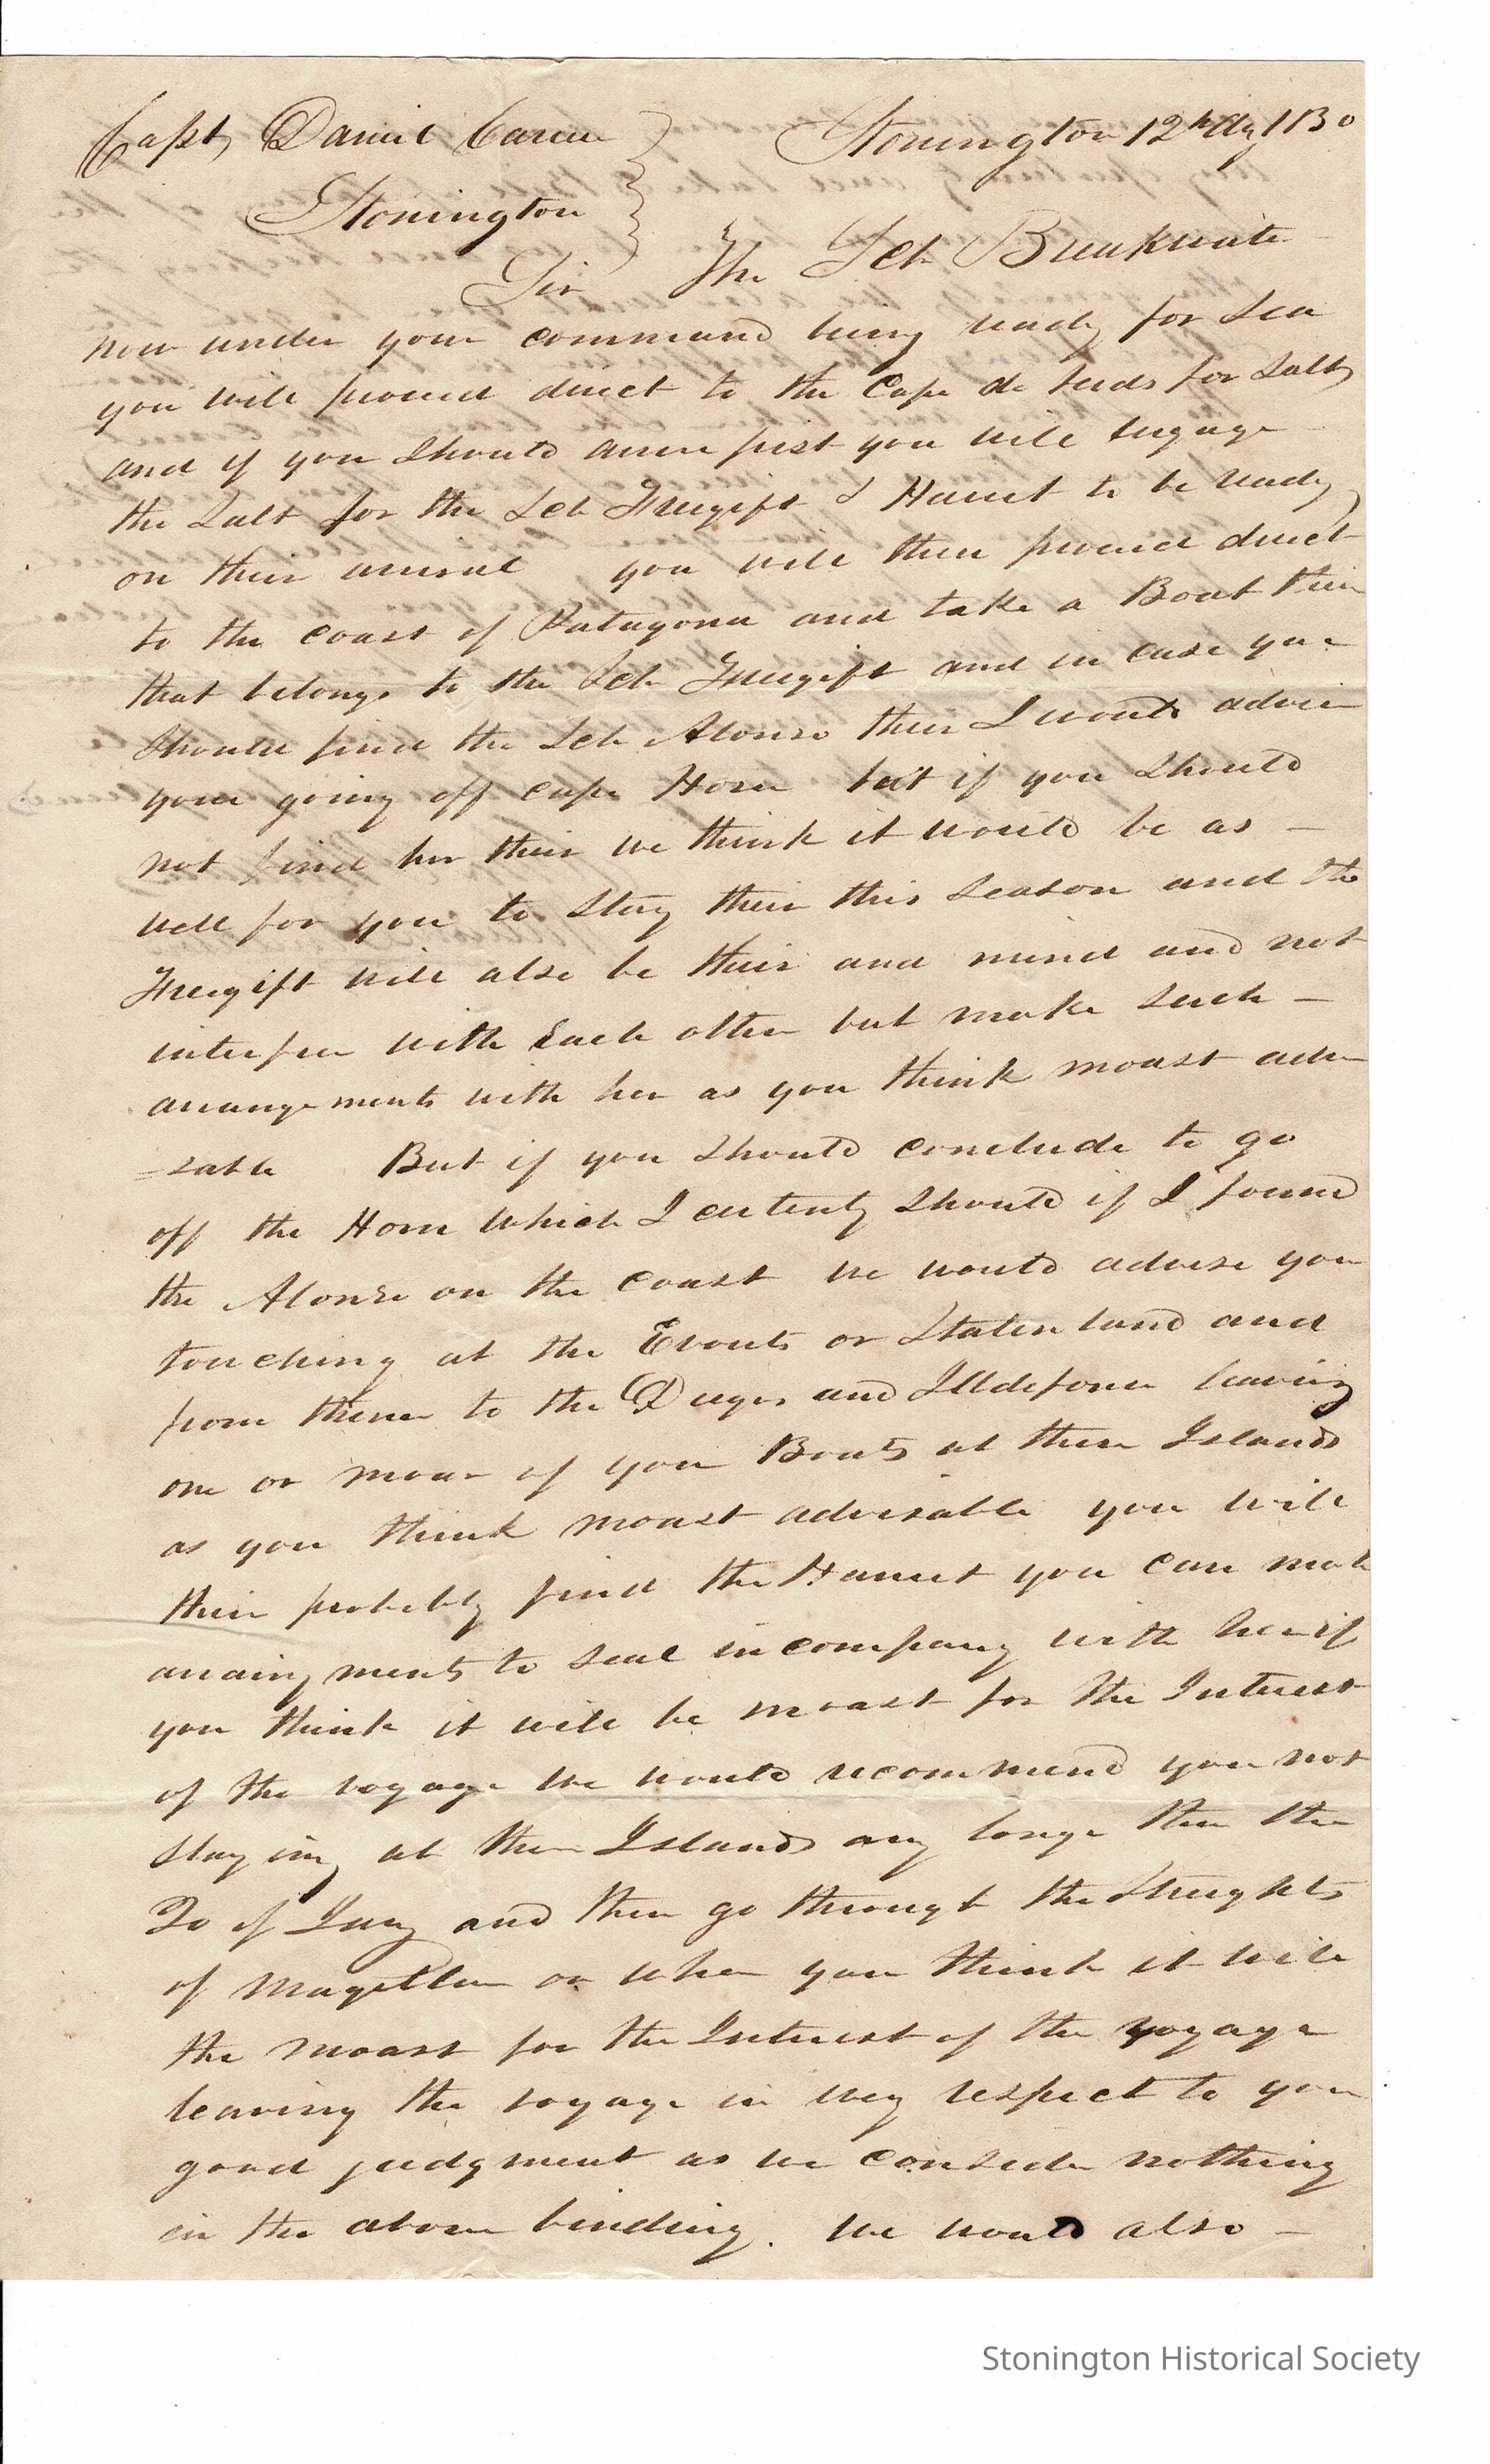 Capt Daniel Carew
Stonington 12th Ag 1830
Stonington
Sir The Sch Breakwater
now under your command being ready for Sea
you will proceed direct to the Cape de Verds for Salt
and if you Should arive first you will Engage
the Salt for the Sch Freegift & Harriet to be ready
on their arrival you will then proceed direct
to the coast of Patagona and take a Boat their
that belongs to the Sch Freegift and in case you
Should find the Sch Alonzo their I would advise
your going off Cape Horn but if you Should
not find her their we think it would be as —
well for you to Stay their this Season and the
Freegift will also be their and mind and not
interfere with Each other but make Such —
arrangements with her as you think moast advi
=sable But if you Should conclude to go
off the Horn which I certenly Should if I found
the Alonzo on the coast we would advise you
touching at the Evouts or Staten land and
from thence to the Diegos and Illdefonso leaving
one or moar of your Boats at these Islands
as you think moast advisable you will
their probebly find the Harriet you can make
arraingments to Seal in company with her if
you think it will be moast for the Interest
of the voyage we would recommend you not
Staying at these Islands any longer then the
20 of Jany and then go through the Streights
of Magellan or when you think it will
the moast for the Interest of the voyage
leaving the voyage in evry respect to your
good judgment as we consider nothing
in the above binding. We would also —
Stonington Historical Society